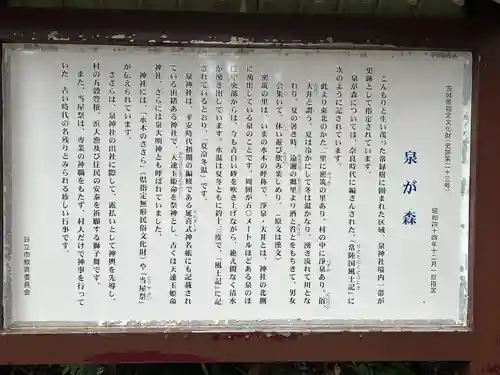 茨城県指定文化財(史跡第二十三号)
泉が森
昭和四十四年十二月一日指定
こんもりと生い茂った常緑樹に囲まれた区域、泉神社境内一帯が
史跡として指定されています。
泉が森については、奈良時代に編さんされた、「常陸国風土記」に
次のように記されています。
此より東北のかた二里に密筑の里あり。村の中に浄泉あり。俗
大井と謂う。夏は冷かにして冬は温かなり。湧き流れて川とな
れり。夏の暑き時、遠邇の郷里より酒と肴とをもちきて、男女
会集いて、休い遊び飲み楽しめり。(原文は漢文)
密筑の里は、いまの水木の呼称で、浄泉・大井とは、神社の北側
に湧出している泉のことです。周囲が五〇メートルほどある泉のほ
ぼ中央部からは、今も青白い砂を吹き上げながら、絶え間なく清水
が湧き出しています。水温は夏冬ともに約十三度で、「風土記」に記
されているとおり、「夏冷冬温」です。
泉神社は、平安時代初期の編纂である延喜式神名帳にも記載され
ている由緒ある神社で、天速玉姫命を祭神とし、古くは天速玉姫命
神社、さらには泉大明神とも呼ばれていました。
神社には、「水木のささら」(県指定無形民俗文化財)や「当屋祭」
が伝えられています。
ささらは、泉神社の出社に際して、露払いとして神輿を先導し、
村の五穀豊穣、浜大漁及び住民の安泰を祈願する獅子舞です。
また、当屋祭は、専業の神職をもたず、村人だけで神事を行って
いた、古い時代の名残りとみられる珍しい行事です。
日立市教育委員会